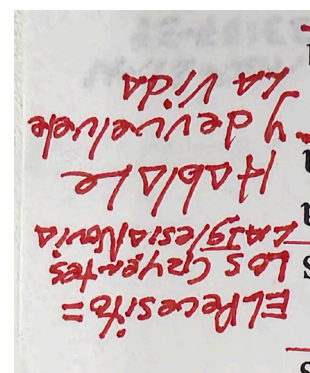 EL Pecesito =
Los Creyentes
LA Iglesia/Novia
Hablale
y devuelvele
LA Vida